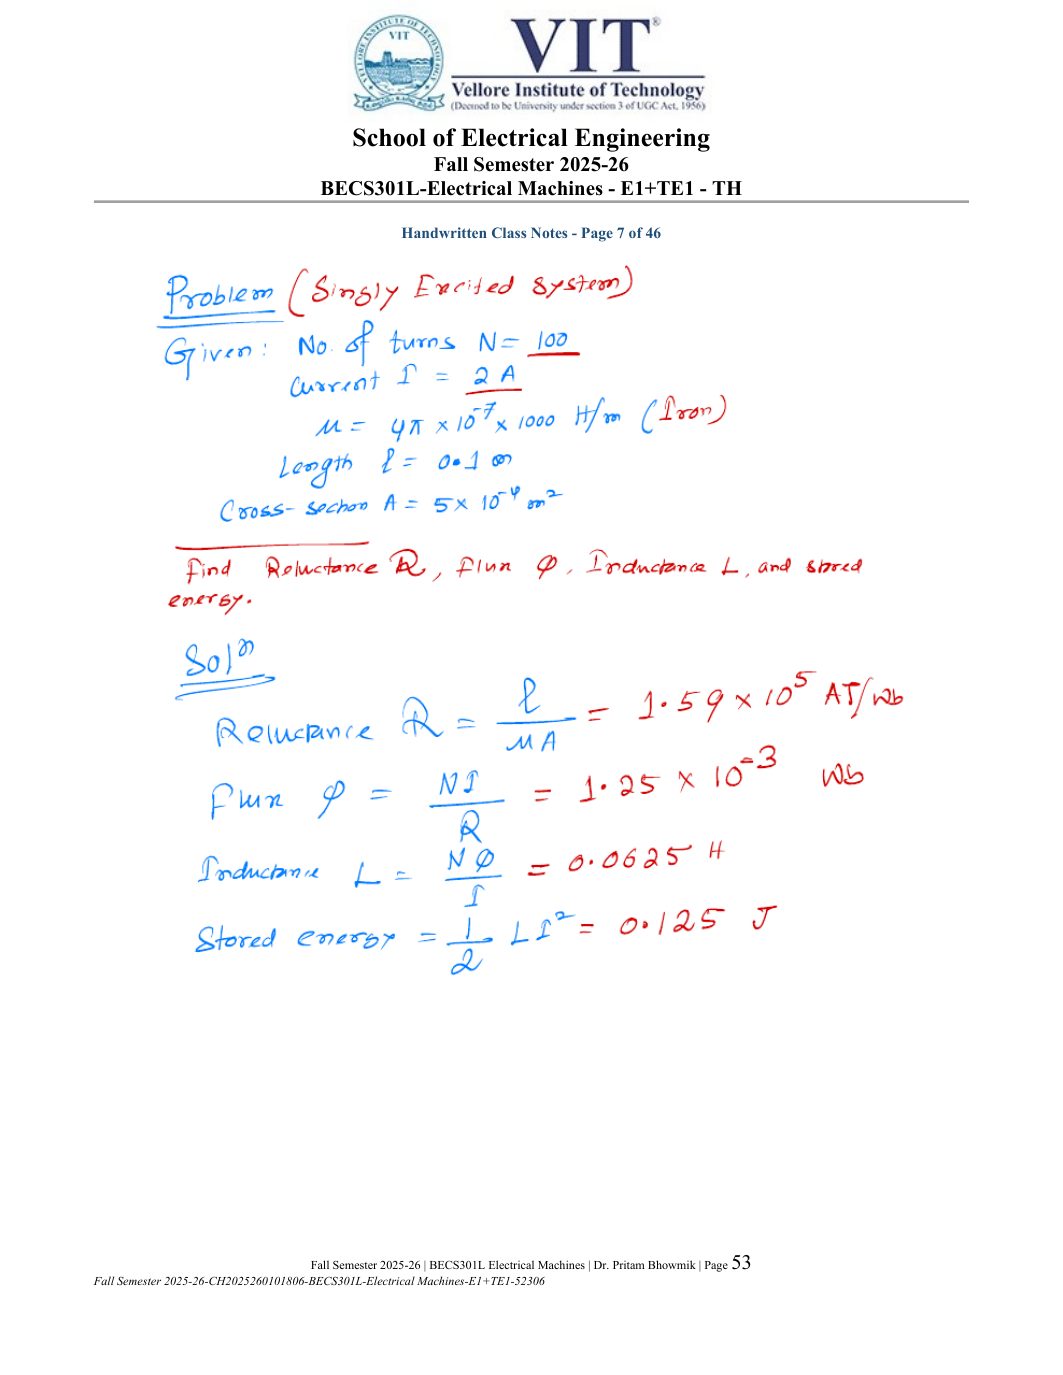 VIT
VIT®
Vellore Institute of Technology
(Deemed to be University under section 3 of UGC Act, 1956)
School of Electrical Engineering
Fall Semester 2025-26
BECS301L-Electrical Machines - E1+TE1 - TH
Handwritten Class Notes - Page 7 of 46
Problem (Singly Excited System)
Given: No. of turns N = 100
Current I = 2 A
μ = 4π × 10⁻⁷ × 1000 H/m (Iron)
Length l = 0.1 m
Cross-section A = 5 × 10⁻⁴ m²
Find Reluctance R, Flux φ, Inductance L, and stored
energy.
Solⁿ
Reluctance R = l/μA = 1.59 × 10⁵ AT/Wb
Flux φ = NI/R = 1.25 × 10⁻³ Wb
Inductance L = Nφ/I = 0.0625 H
Stored energy = 1/2 LI² = 0.125 J
Fall Semester 2025-26 | BECS301L Electrical Machines | Dr. Pritam Bhowmik | Page 53
Fall Semester 2025-26-CH2025260101806-BECS301L-Electrical Machines-E1+TE1-52306